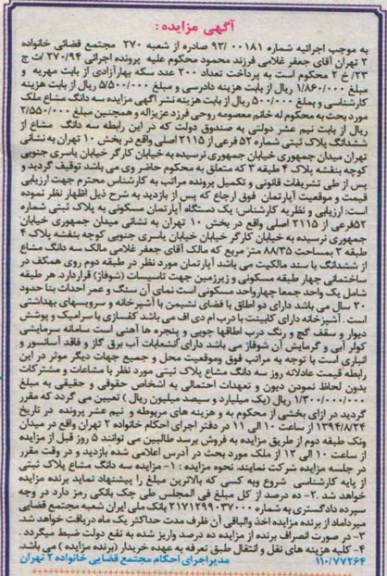 آگهی مزایده:
به موجب اجرائیه شماره ۹۳/۰۰۱۸۱ صادره از شعبه ۲۷۰ مجتمع قضائی خانواده
۲ تهران آقای جعفر غلامی فرزند محمود محکوم علیه پرونده اجرائی ۲۷۰/۹۴ ث ج
۲۳/خ ۲ محکوم است به پرداخت تعداد ۲۰۰ عدد سکه بهارآزادی از بابت مهریه و
مبلغ ۱/۸۶۰/۰۰۰ ریال از بابت هزینه دادرسی و مبلغ ۵/۵۰۰/۰۰۰ ریال از بابت هزینه
کارشناسی و مبلغ ۵۰۰/۰۰۰ ریال از بابت هزینه نشر آگهی مزایده سه دانگ مشاع ملک
مورد بحث به محکوم له خانم معصومه روحی فرزند عزیزاله و همچنین مبلغ ۲/۵۵۰/۰۰۰
ریال از بابت نیم عشر دولتی به صندوق دولت که در این رابطه سه دانگ مشاع از
ششدانگ پلاک ثبتی شماره ۵۲ فرعی از ۲۱۱۵ اصلی واقع در بخش ۱۰ تهران به نشانی
تهران میدان جمهوری خیابان جمهوری نرسیده به خیابان کارگر خیابان یاسری جنوبی
کوچه بنفشه پلاک ۴ طبقه ۳ که متعلق به محکوم حاضر وی می باشد توقیف گردید و
پس از طی تشریفات قانونی و تکمیل پرونده مراتب به کارشناس محترم جهت ارزیابی
قیمت و موقعیت آپارتمان فوق ارجاع که پس از بازدید به شرح ذیل اظهار نظر نموده
است: ارزیابی و نظریه کارشناس: یک دستگاه آپارتمان مسکونی به پلاک ثبتی شماره
۵۲فرعی از ۲۱۱۵ اصلی واقع در بخش ۱۰ تهران به نشانی میدان جمهوری خیابان
جمهوری نرسیده به خیابان کارگر خیابان خیابان یاسری جنوبی کوچه بنفشه پلاک ۴
طبقه ۳ بمساحت ۸۸/۳۵ متر مربع که مالک آقای جعفر غلامی مالک سه دانگ مشاع
از ششدانگ با سند مالکیت می باشد آپارتمان مورد نظر در طبقه دوم روی همکف در
ساختمانی چهار طبقه مسکونی و زیرزمین جهت تاسیسات (شوفاژ) قراردارد. هر طبقه
شامل یک واحد جمعا چهارواحد مسکونی است نمای آن سنگ و عمر احداث بنا حدود
۲۰ سال می باشد دارای دو اطاق با فضای نشیمن با آشپزخانه و سرویسهای بهداشتی
است. آشپزخانه دارای کابینت با درب ام دی اف می باشد کفسازی با سرامیک و پوشش
دیوار و سقف گچ و رنگ درب اطاقها چوبی و پنجره ها آهنی است سامانه سرمایشی
کولر آبی و گرمایش آن شوفاژ می باشد دارای انشعابات آب برق گاز و فاقد آسانسور و
انباری است با توجه به مراتب فوق وموقعیت محل و جمیع جهات دیگر موثر در این
رابطه قیمت عادلانه روز سه دانگ مشاع پلاک ثبتی مورد نظر با مشاعات و مشترکات
بدون لحاظ نمودن دیون و تعهدات احتمالی به اشخاص حقوقی و حقیقی به مبلغ
۱/۳۰۰/۰۰۰/۰۰۰ ریال (یک میلیارد و سیصد میلیون ریال) تعیین می گردد که مقرر
گردید در ازای بخشی از محکوم به و هزینه های مربوطه و نیم عشر پرونده در تاریخ
۱۳۹۴/۸/۲۴ از ساعت ۱۰ الی ۱۱ در دفتر اجرای احکام خانواده ۲ تهران واقع در میدان
ونک طبقه دوم از طریق مزایده به فروش برسد طالبین می توانند ۵ روز قبل از مزایده
از ساعت ۱۰ الی ۱۲ از ملک مورد بحث در آدرس اعلامی شده بازدید و در وقت مقرر
در جلسه مزایده شرکت نمایند. نحوه مزایده: ۱- مزایده سه دانگ مشاع پلاک ثبتی
از پایه کارشناسی شروع وبه کسی که بالاترین مبلغ را پیشنهاد نماید برنده مزایده
خواهد شد. ۲- ده درصد از کل مبلغ فی المجلس طی چک بانکی رمز دارد در وجه
سپرده دادگستری به شماره ۲۱۷۱۲۹۹۰۳۷۰۰۰ بانک ملی ایران شعبه مجتمع قضایی
میرداماد از برنده مزایده اخذ والباقی آن ظرف مدت حداکثر یک ماه دریافت خواهد شد.
۳- در صورت انصراف برنده از مزایده ده درصد واریز شده به نفع دولت ضبط میگردد.
۴- کلیه هزینه های نقل و انتقال طبق تعرفه به عهده خریدار (برنده مزایده) می باشد.
۱۱۰/۷۷۲۶۴ مدیراجرای احکام مجتمع قضایی خانواده ۲ تهران